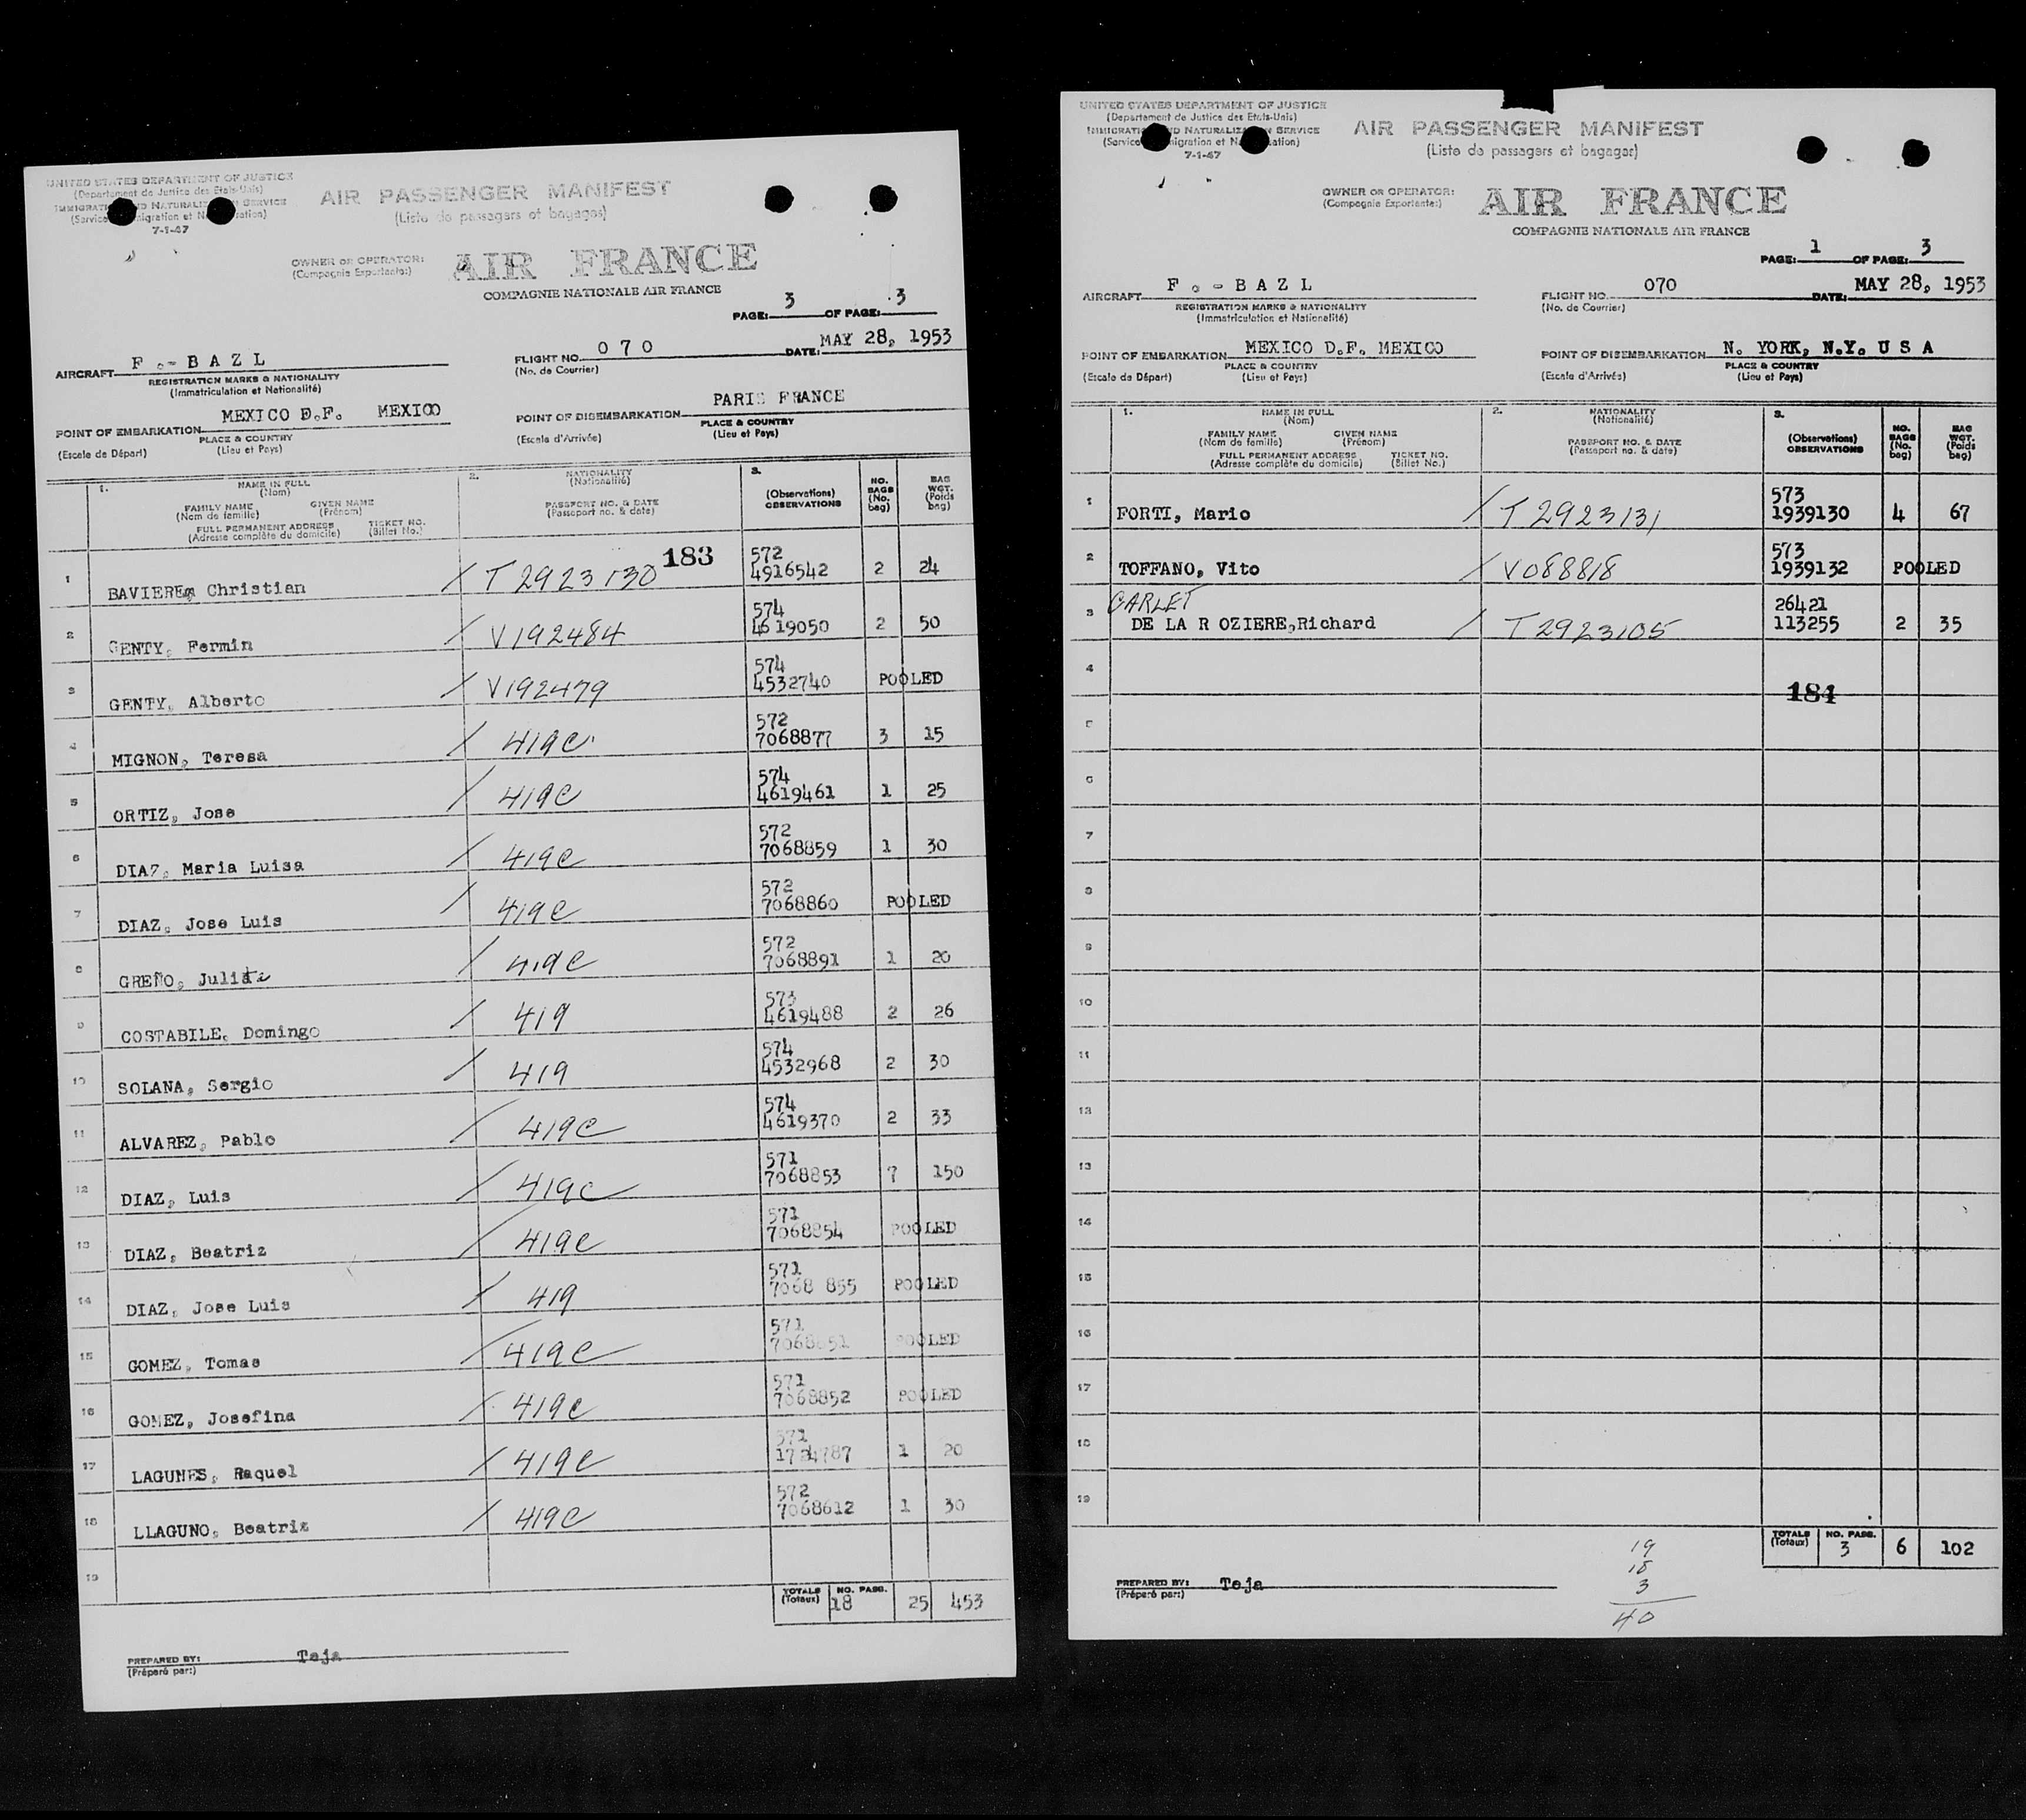 UNITED STATES DEPARTMENT OF JUSTICE
(Departement de Justice des Etats-Unis)
IMMIGRATI ND NATURALIZ N SERVICE
(Service migration et N sation)
7-1-47
AIR PASSENGER MANIFEST
(Liste de passagers et bagages)
OWNER OR OPERATOR:
(Compagnie Exportante:)
AIR FRANCE
COMPAGNIE NATIONALE AIR FRANCE
PAGE: 3 OF PAGE: 3
AIRCRAFT F.-BAZL
REGISTRATION MARKS & NATIONALITY
(Immatriculation et Nationalité)
FLIGHT NO. 070
(No. de Courrier)
DATE: MAY 28, 1953
POINT OF EMBARKATION MEXICO D.F. MEXICO
PLACE & COUNTRY
(Escale de Départ) (Lieu et Pays)
POINT OF DISEMBARKATION PARIS FRANCE
PLACE & COUNTRY
(Escale d'Arrivée) (Lieu et Pays)
1. NAME IN FULL
(Nom)
FAMILY NAME GIVEN NAME
(Nom de famille) (Prénom)
FULL PERMANENT ADDRESS TICKET NO.
(Adresse complète du domicile) (Billet No.)
2. NATIONALITY
(Nationalité)
PASSPORT NO. & DATE
(Passeport no. & date)
3.
(Observations)
OBSERVATIONS
NO. BAGS (No. bag)
BAG WGT. (Poids bag)
183
1 BAVIERE, Christian / T2923130 572 4916542 2 24
2 GENTY, Fermin / V192484 574 4619050 2 50
3 GENTY, Alberto / V192479 574 4532740 POOLED
4 MIGNON, Teresa / 419c 572 7068877 3 15
5 ORTIZ, Jose / 419c 574 4619461 1 25
6 DIAZ, Maria Luisa / 419c 572 7068859 1 30
7 DIAZ, Jose Luis / 419c 572 7068860 POOLED
8 GREÑO, Julita / 419c 572 7068891 1 20
9 COSTABILE, Domingo / 419 573 4619488 2 26
10 SOLANA, Sergio / 419 574 4532968 2 30
11 ALVAREZ, Pablo / 419c 574 4619370 2 33
12 DIAZ, Luis / 419c 571 7068853 7 150
13 DIAZ, Beatriz / 419c 571 7068854 POOLED
14 DIAZ, Jose Luis / 419 571 7068 855 POOLED
15 GOMEZ, Tomas / 419c 571 7068851 POOLED
16 GOMEZ, Josefina / 419c 571 7068852 POOLED
17 LAGUNES, Raquel / 419c 571 1724787 1 20
18 LLAGUNO, Beatriz / 419c 572 7068612 1 30
19
TOTALS (Totaux) NO. PASS. 18 25 453
PREPARED BY: Teja
(Préparé par:)
UNITED STATES DEPARTMENT OF JUSTICE
(Departement de Justice des Etats-Unis)
IMMIGRATI ND NATURALIZ N SERVICE
(Service migration et N ation)
7-1-47
AIR PASSENGER MANIFEST
(Liste de passagers et bagages)
OWNER OR OPERATOR:
(Compagnie Exportante:)
AIR FRANCE
COMPAGNIE NATIONALE AIR FRANCE
PAGE: 1 OF PAGE: 3
AIRCRAFT F.-BAZL
REGISTRATION MARKS & NATIONALITY
(Immatriculation et Nationalité)
FLIGHT NO. 070
(No. de Courrier)
DATE: MAY 28, 1953
POINT OF EMBARKATION MEXICO D.F. MEXICO
PLACE & COUNTRY
(Escale de Départ) (Lieu et Pays)
POINT OF DISEMBARKATION N. YORK, N.Y. U S A
PLACE & COUNTRY
(Escale d'Arrivée) (Lieu et Pays)
1. NAME IN FULL
(Nom)
FAMILY NAME GIVEN NAME
(Nom de famille) (Prénom)
FULL PERMANENT ADDRESS TICKET NO.
(Adresse complète du domicile) (Billet No.)
2. NATIONALITY
(Nationalité)
PASSPORT NO. & DATE
(Passeport no. & date)
3.
(Observations)
OBSERVATIONS
NO. BAGS (No. bag)
BAG WGT. (Poids bag)
1 FORTI, Mario / T2923131 573 1939130 4 67
2 TOFFANO, Vito / V088818 573 1939132 POOLED
3 CARLET
DE LA R OZIERE,Richard / T2923105 26421 113255 2 35
4
184
5
6
7
8
9
10
11
12
13
14
15
16
17
18
19
TOTALS (Totaux) NO. PASS. 3 6 102
19
18
3
40
PREPARED BY: Teja
(Préparé par:)